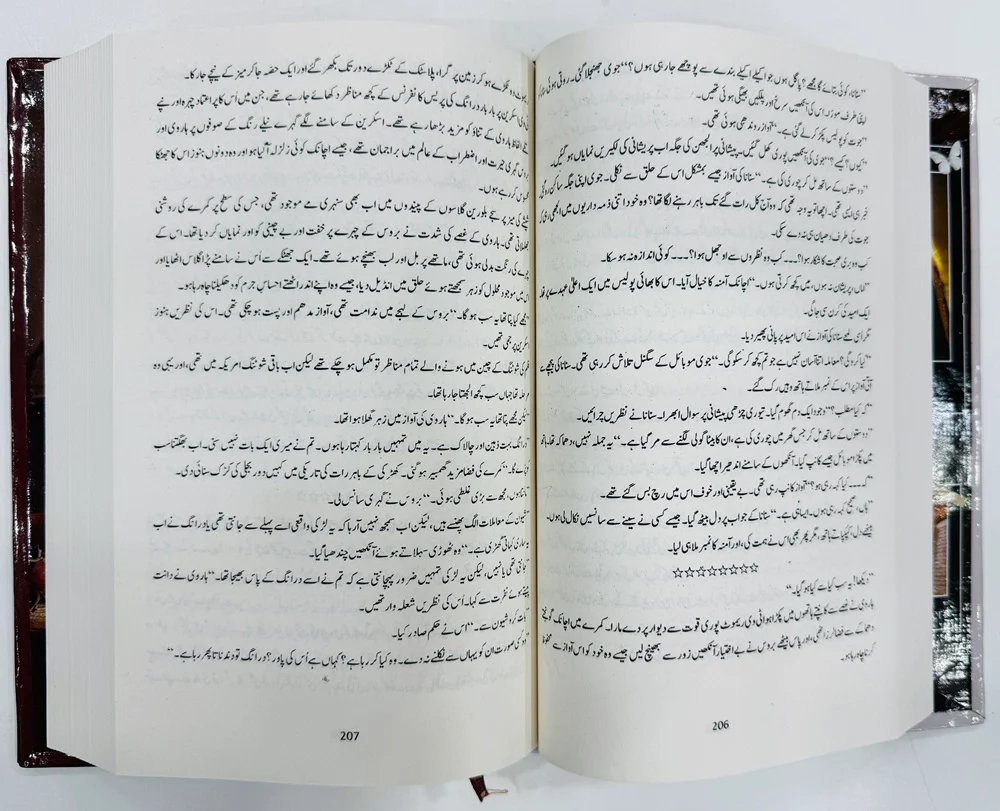 ”سنانا، کوئی بتائے گا مجھے؟ پاگل ہوں جو اکیلے اکیلے بندے سے پوچھے جا رہی ہوں؟“ جوی جھنجھلا گئی۔ روتی ہوئی
اپنی طرف موڑا۔ اس کی آنکھیں سرخ اور پلکیں بھیگی ہوئی تھیں۔
”جوت کو پولیس پکڑ کر لے گئی ہے۔“ آواز روندھی ہوئی تھی۔
”کیوں؟ کیسے؟“ جوی کی آنکھیں پوری کھل گئیں۔ پیشانی پر الجھن کی جگہ اب پریشانی کی لکیریں نمایاں ہو گئیں۔
”دوستوں کے ساتھ مل کر چوری کی ہے۔“ سنانا کی آواز جیسے بمشکل اس کے حلق سے نکلی۔ جوی اپنی جگہ ساکن رہ گئی
خبر ہی ایسی تھی۔ اچھا تو یہ وجہ تھی کہ وہ آج کل رات گئے تک باہر رہنے لگا تھا؟ وہ خود اتنی ذمہ داریوں میں الجھی رہی کہ
جوت کی طرف دھیان ہی نہ دے سکی۔
کب وہ بری صحبت کا شکار ہوا؟۔۔۔ کب وہ نظروں سے اوجھل ہوا؟۔۔۔ کوئی اندازہ نہ ہو سکا۔
”اماں، پریشان نہ ہوں، میں کچھ کرتی ہوں۔“ اچانک آمنہ کا خیال آیا۔ اس کا بھائی پولیس میں ایک اعلیٰ عہدے پر تھا۔
ایک امید کی کرن سی جاگی۔
مگر اگلے لمحے سنانا کی آواز نے اس امید پر پانی پھیر دیا۔
”کیا کرو گی؟ معاملہ اتنا آسان نہیں ہے جو تم کچھ کر سکو گی۔“ جوی موبائل کے سگنل تلاش کر رہی تھی۔ سنانا کی پیچھے سے
آتی آواز پر اس کے نمبر ملاتے ہاتھ وہیں رک گئے۔
”کہ کیا مطلب؟“ وجود ایک دم گھوم گیا۔ تیوری چڑھی پیشانی پر سوال ابھرا۔ سنانا نے نظریں چرائیں۔
”دوستوں کے ساتھ مل کر جس گھر میں چوری کی ہے، ان کا بیٹا گولی لگنے سے مر گیا ہے۔“ یہ جملہ نہیں، دھماکہ تھا۔ ہاتھ
میں پکڑا موبائل جیسے کانپ گیا۔ آنکھوں کے سامنے اندھیرا چھا گیا۔
”کہ۔۔۔ کیا کہہ رہی ہو؟“ آواز کانپ رہی تھی۔ بے یقینی اور خوف اس میں رچ بس گئے تھے۔
”ہاں، صحیح کہہ رہی ہوں۔ ایسا ہی ہے۔“ سنانا کے جواب پر دل بیٹھ گیا۔ جیسے کسی نے سینے سے سانسیں نکال لی ہوں۔
بیٹھے دل، کپکپاتے ہاتھ، مگر پھر بھی اس نے ہمت کی، اور آمنہ کا نمبر ملا ہی لیا۔
☆☆☆☆☆☆☆☆
”دیکھا! یہ سب کیا سے کیا ہو گیا۔“
ہاروی نے غصے سے کانپتے ہاتھوں میں پکڑا ہوا ٹی وی ریموٹ پوری قوت سے دیوار پر دے مارا۔ کمرے میں اچانک گونجنے
دھماکے سے فضا لرز اٹھی، اور پاس بیٹھے بروس نے بے اختیار آنکھیں زور سے بھینچ لیں جیسے وہ خود کو اس آواز سے محفوظ
کرنا چاہ رہا ہو۔
206
ریموٹ دو ٹکڑے ہو کر زمین پر گرا، پلاسٹک کے ٹکڑے دور تک بکھر گئے اور ایک حصہ جا کر میز کے نیچے جا رکا۔
ٹی وی اسکرین پر بار بار ورانگ کی پریس کانفرنس کے کچھ مناظر دکھائے جا رہے تھے، جن میں اُس کا پر اعتماد چہرہ اور نپے
تلے الفاظ ہاروی کے تناؤ کو مزید بڑھا رہے تھے۔ اسکرین کے سامنے لگے گہرے نیلے رنگ کے صوفوں پر ہاروی اور
بروس گہری حیرت اور اضطراب کے عالم میں براجمان تھے، جیسے اچانک کوئی زلزلہ آ گیا ہو اور وہ دونوں ہنوز اس کا جھٹکا
محسوس کر رہے ہوں۔
شیشے کی میز پر سجے بلوریں گلاسوں کے پیندوں میں اب بھی سنہری مے موجود تھی، جس کی سطح پر کمرے کی روشنی
جھلملاتی تھی۔ ہاروی کے غصے کی شدت نے بروس کے چہرے پر خفت اور بے چینی کو اور نمایاں کر دیا تھا۔ اس کے
چہرے کی رنگت بدلی ہوئی تھی، ماتھے پر بل اور لب بھینچے ہوئے تھے۔ ایک جھٹکے سے اُس نے سامنے پڑا گلاس اٹھایا اور
اس میں موجود محلول کو زہر سمجھتے ہوئے حلق میں انڈیل دیا، جیسے وہ اپنے اندر اٹھتے احساسِ جرم کو دھکیلنا چاہ رہا ہو۔
”مجھے کیا پتا تھا یہ سب ہو گا۔“ بروس کے لہجے میں ندامت تھی، آواز مدھم اور پست ہو چکی تھی۔ اس کی نظریں ہنوز
اسکرین پر جمی تھیں۔
فلم کی شوٹنگ کے چین میں ہونے والے تمام مناظر تو مکمل ہو چکے تھے لیکن اب باقی شوٹنگ امریکہ میں تھی، اور یہی وہ
مرحلہ تھا جہاں سب کچھ الجھتا جا رہا تھا۔
”لیکن مجھے پتا تھا یہ سب ہو گا۔“ ہاروی کی آواز میں زہر گھلا ہوا تھا۔
”ورانگ بہت ذہین اور چالاک ہے۔ یہ میں تمہیں بار بار کہتا رہا ہوں۔ تم نے میری ایک بات نہیں سنی۔ اب بھگتنا سب
کو پڑے گا۔“ کمرے کی فضا مزید گھمبیر ہو گئی۔ کھڑکی کے باہر رات کی تاریکی میں کہیں دور بجلی کی کڑک سنائی دی۔
”مانتا ہوں، مجھ سے بڑی غلطی ہوئی۔“ بروس نے گہری سانس لی۔
”شیون کے معاملات الگ پھنسے ہیں، لیکن اب سمجھ نہیں آ رہا کہ یہ لڑکی واقعی اسے پہلے سے جانتی تھی یا ورانگ نے اب
یہ ساری کہانی گھڑی ہے۔“ وہ ٹھوڑی سہلاتے ہوئے آنکھیں چندھیا گیا۔
”جانتی تھی یا نہیں، لیکن یہ لڑکی تمہیں ضرور پہچانتی ہے کہ تم نے اسے ورانگ کے پاس بھیجا تھا۔“ ہاروی نے دانت
پیستے ہوئے نفرت سے کہا۔ اُس کی نظریں شعلہ وار تھیں۔
”بات کرو شیون سے۔“ اس نے حکم صادر کیا۔
”کوئی صورت ان کو یہاں سے نکلنے نہ دے۔ وہ کیا کر رہا ہے؟ کہاں ہے اُس کی پاور؟ ورانگ تو دندناتا پھر رہا ہے۔“
207